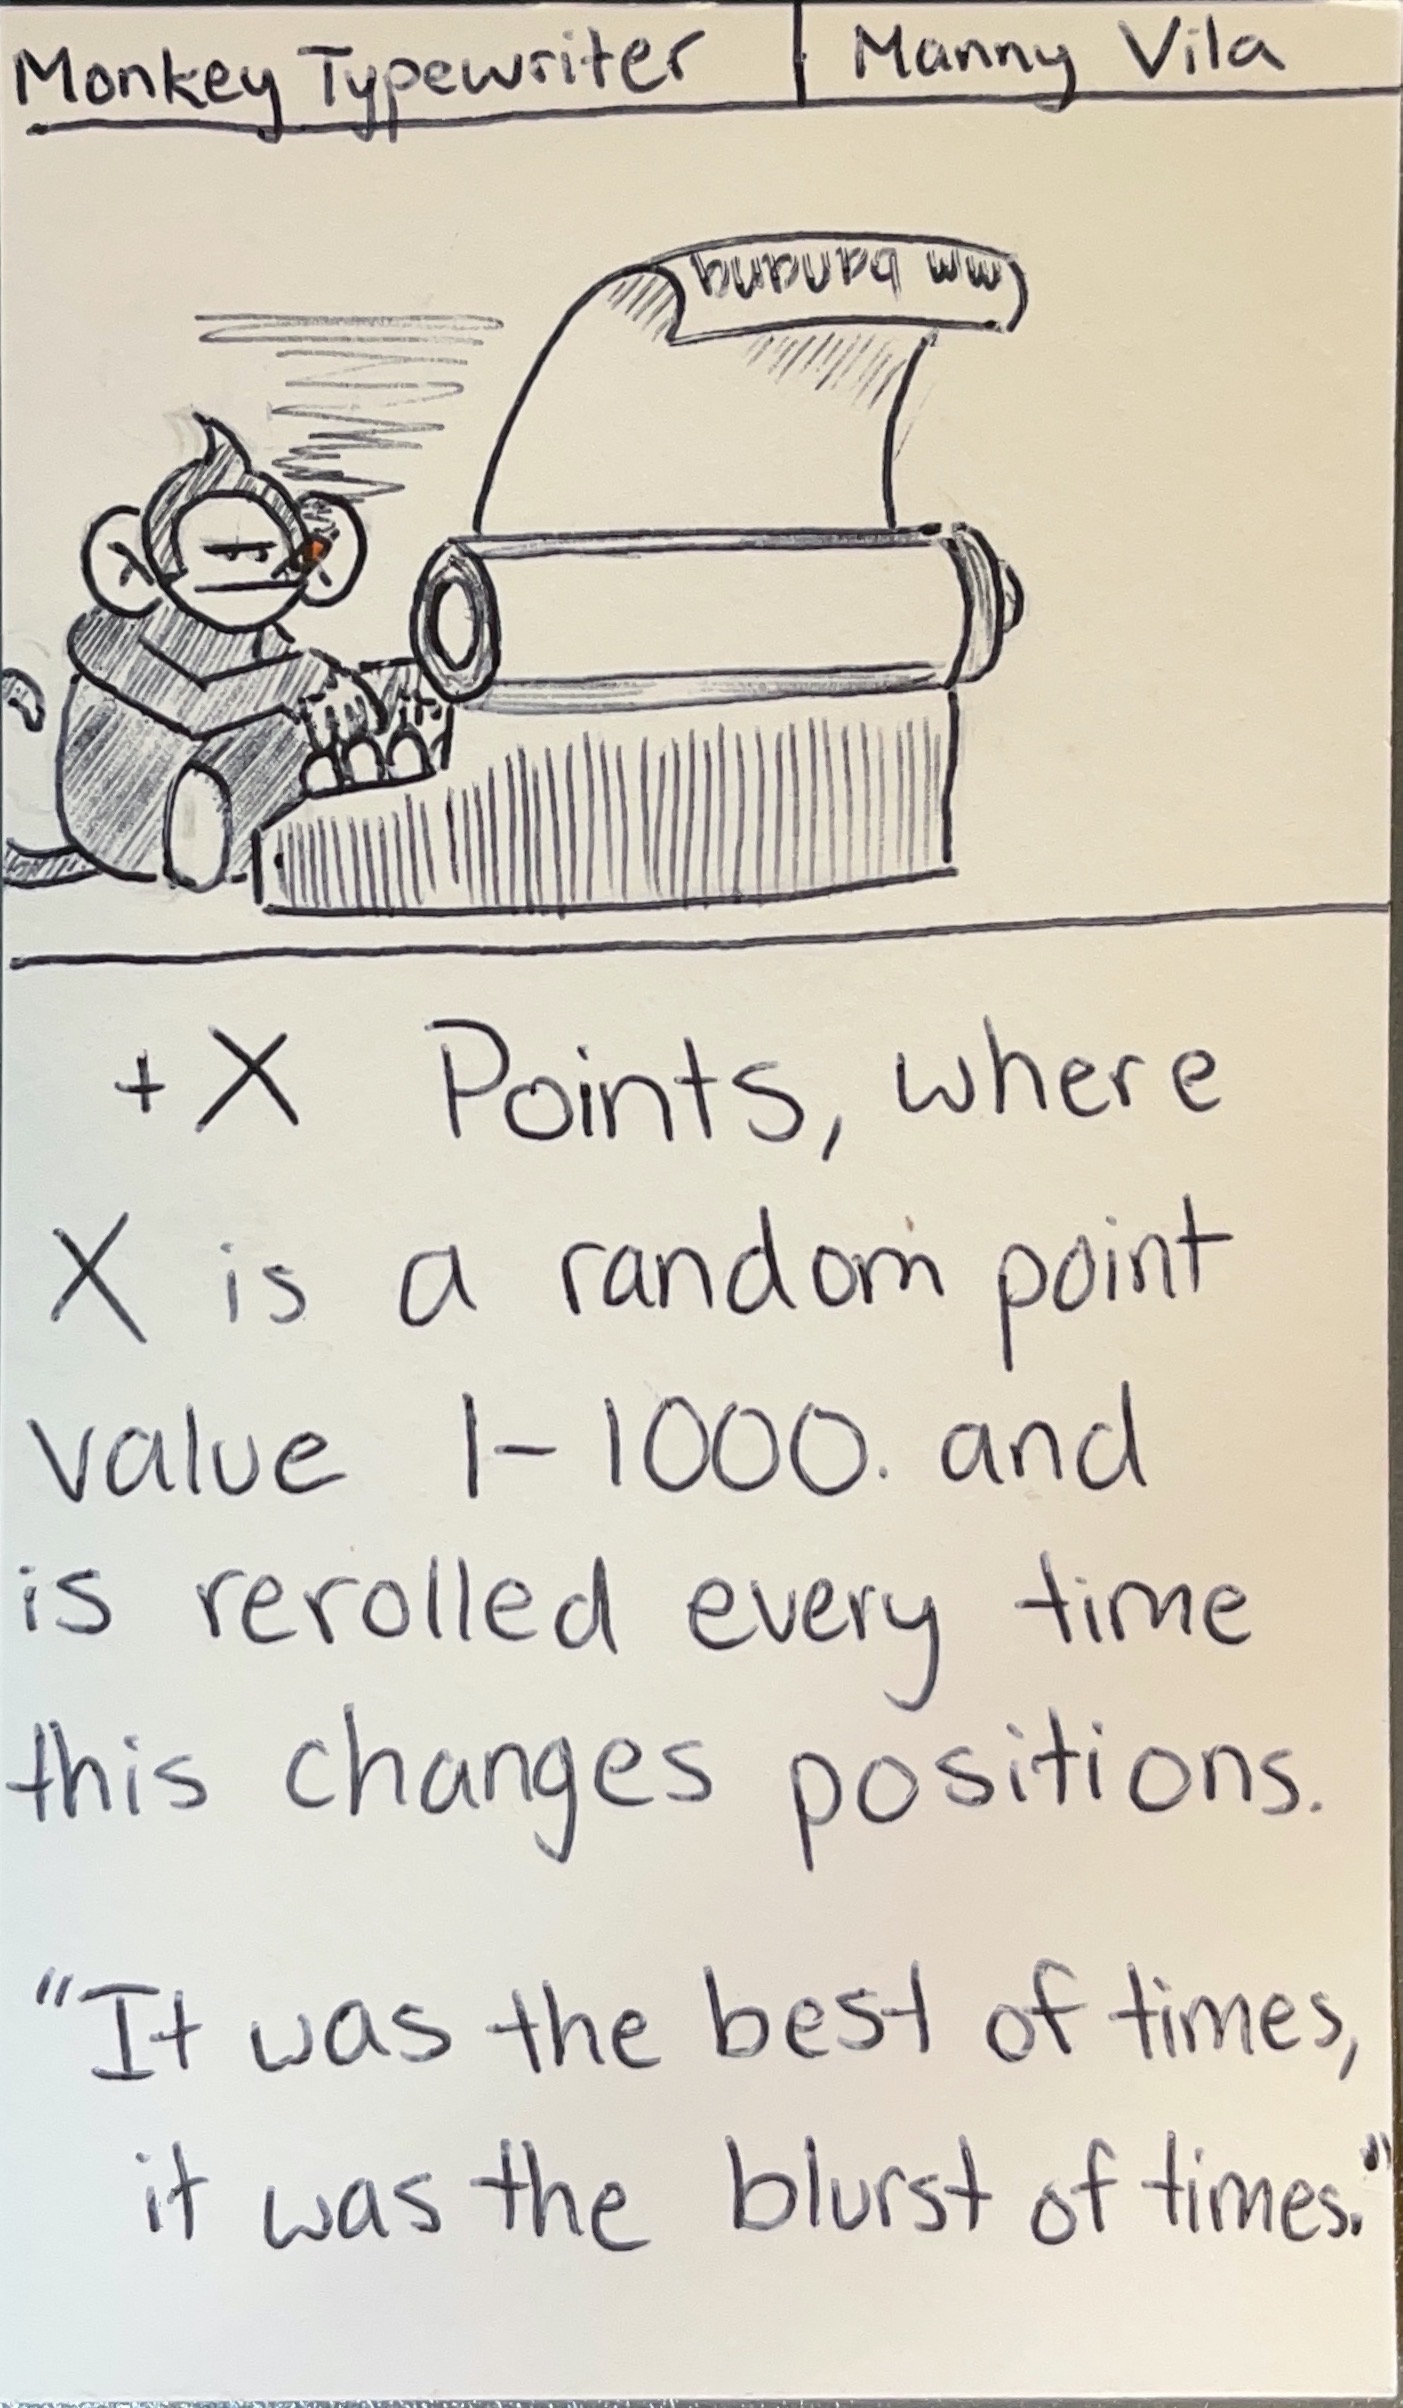 Monkey Typewriter | Manny Vila
mm banana
+X Points, where
X is a random point
value 1-1000. and
is rerolled every time
this changes positions.
"It was the best of times,
it was the blurst of times."